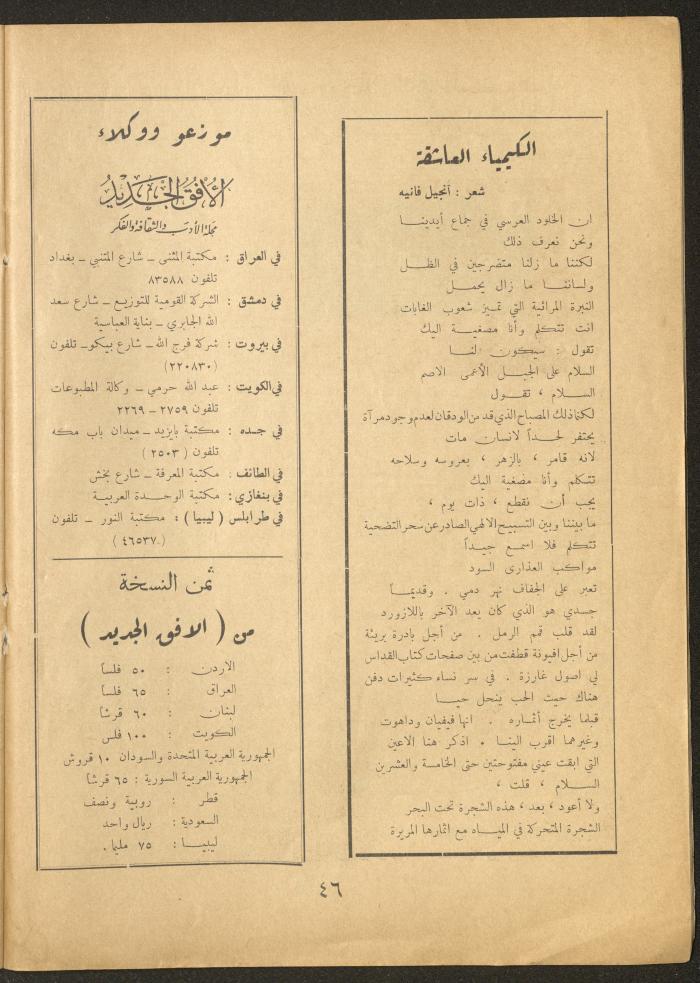 الكيمياء العاشقة
شعر : أنجيل فانيه
ان الخلود العرسي في جماع أيدينا
ونحن نعرف ذلك
لكننا ما زلنا متضرجين في الظل
ولساننا ما زال يحمل
النبرة المرائية التي تميز شعوب الغابات
انت تتكلم وأنا مصغية اليك
تقول : سيكون لنا
السلام على الجبل الأعمى الاصم
السلام ، تقول
لكنا ذلك المصباح الذي قد من الودقان لعدم وجود مرآة
يحتفر لحداً لانسان مات
لانه قامر ، بالزهر ، بعروسه وسلاحه
تتكلم وأنا مصغية اليك
يجب أن نقطع ، ذات يوم ،
ما بيننا وبين التسبيح الالهي الصادر عن سحر التضحية
تتكلم فلا اسمع جيداً
مواكب العذارى السود
تعبر على الجفاف نهر دمي . وقديماً
جسدي هو الذي كان يعد الآخر باللازورد
لقد قلب قمم الرمل . من أجل بادرة بريئة
من أجل افيونة قطفت من بين صفحات كتاب القداس
لي اصول غارزة . في سر نساء كثيرات دفن
هناك حيث الحب ينحل حيا
قبلما يخرج أثماره . انها فيفيان وداهوت
وغيرهما اقرب الينا . اذكر هنا الاعين
التي ابقت عيني مفتوحتين حتى الخامسة والعشرين
السلام ، قلت ،
ولا أعود ، بعد ، هذه الشجرة تحت البحر
الشجرة المتحركة في المياه مع اثمارها المريرة
موزعو ووكلاء
الأفق الجديد
مجلة الأدب والثقافة والفكر
في العراق : مكتبة المثنى – شارع المتنبي – بغداد
تلفون ٨٣٥٨٨
في دمشق : الشركة القومية للتوزيع – شارع سعد
الله الجابري – بناية العباسية
في بيروت : شركة فرج الله – شارع بيكو – تلفون
(٢٢٠٨٣٠)
في الكويت : عبد الله حرمي – وكالة المطبوعات
تلفون ٢٧٥٩ – ٢٢٦٩
في جده : مكتبة بايزيد – ميدان باب مكه
تلفون ( ٢٥٠٣ )
في الطائف : مكتبة المعرفة – شارع بخش
في بنغازي : مكتبة الوحدة العربية
في طرابلس ( ليبيا ) : مكتبة النور – تلفون
( ٤٦٥٣٧ )
ثمن النسخة
من ( الافق الجديد )
الاردن : ٥٠ فلساً
العراق : ٦٥ فلساً
لبنان : ٦٠ قرشاً
الكويت : ١٠٠ فلس
الجمهورية العربية المتحدة والسودان ١٠ قروش
الجمهورية العربية السورية : ٦٥ قرشا
قطر : روبية ونصف
السعودية : ريال واحد
ليبيا : ٧٥ مليا .
٤٦